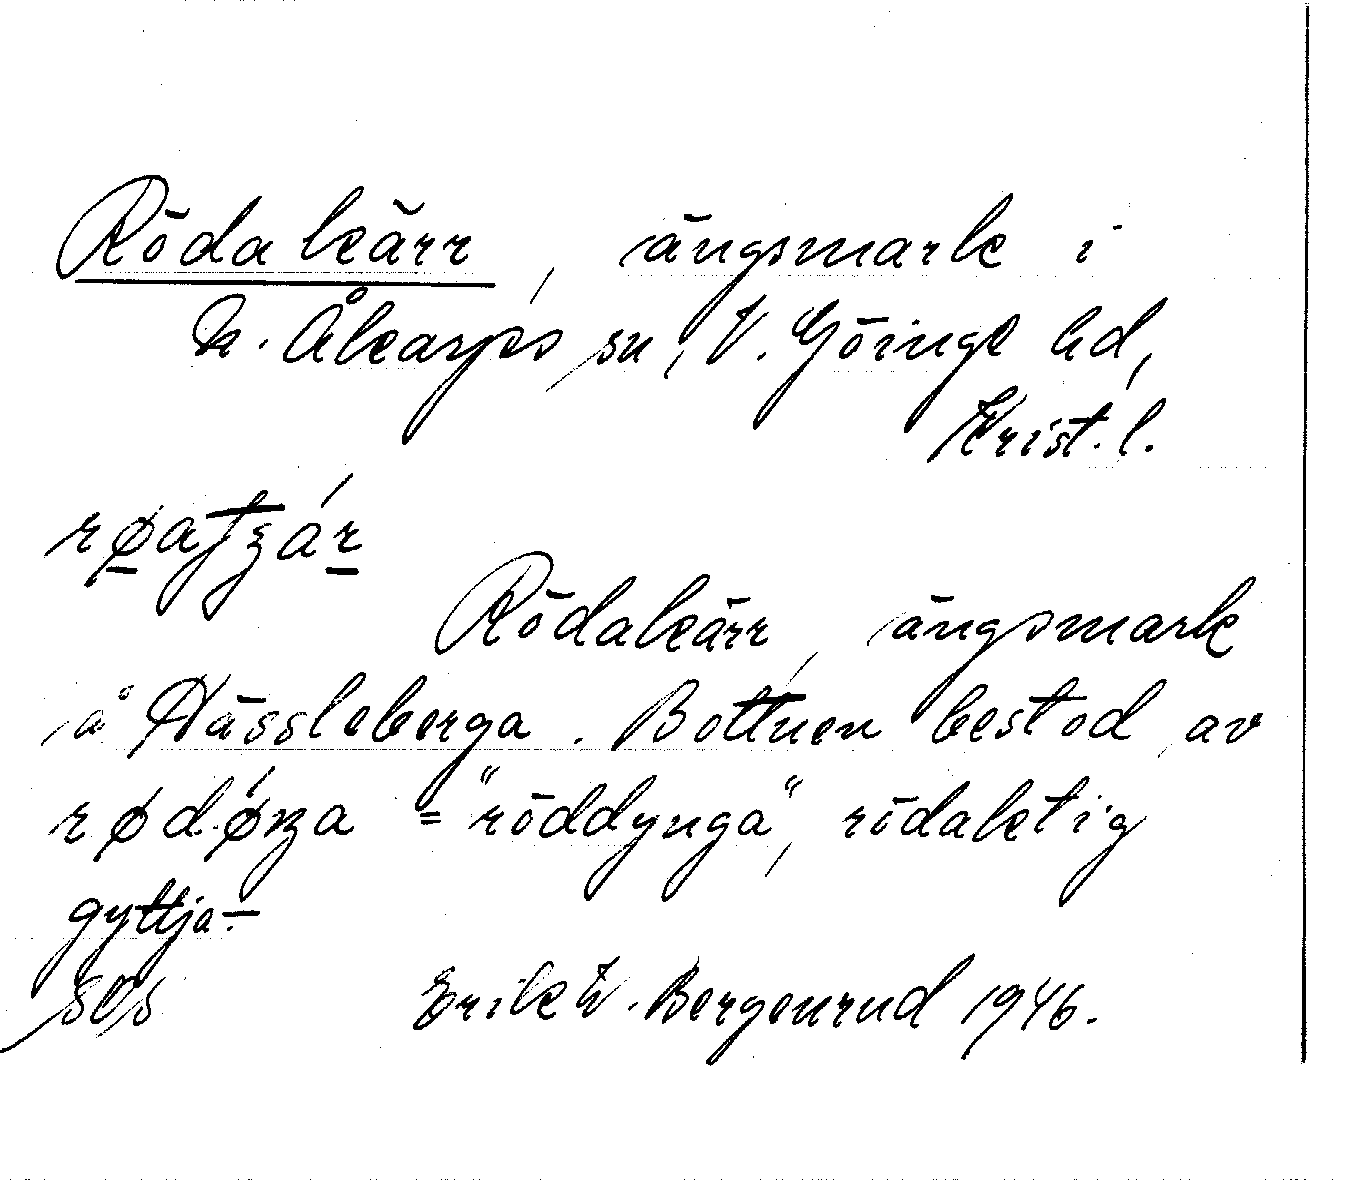 Röda kärr, ängsmark i
N. Åkarps sn, V. Göinge hd,
Krist. l.
Rödakärr, ängsmark
å Hässleberga. Bottnen bestod av
= "röddynga", rödaktig
gyttja.—
Erik W. Bergenrud 1946.